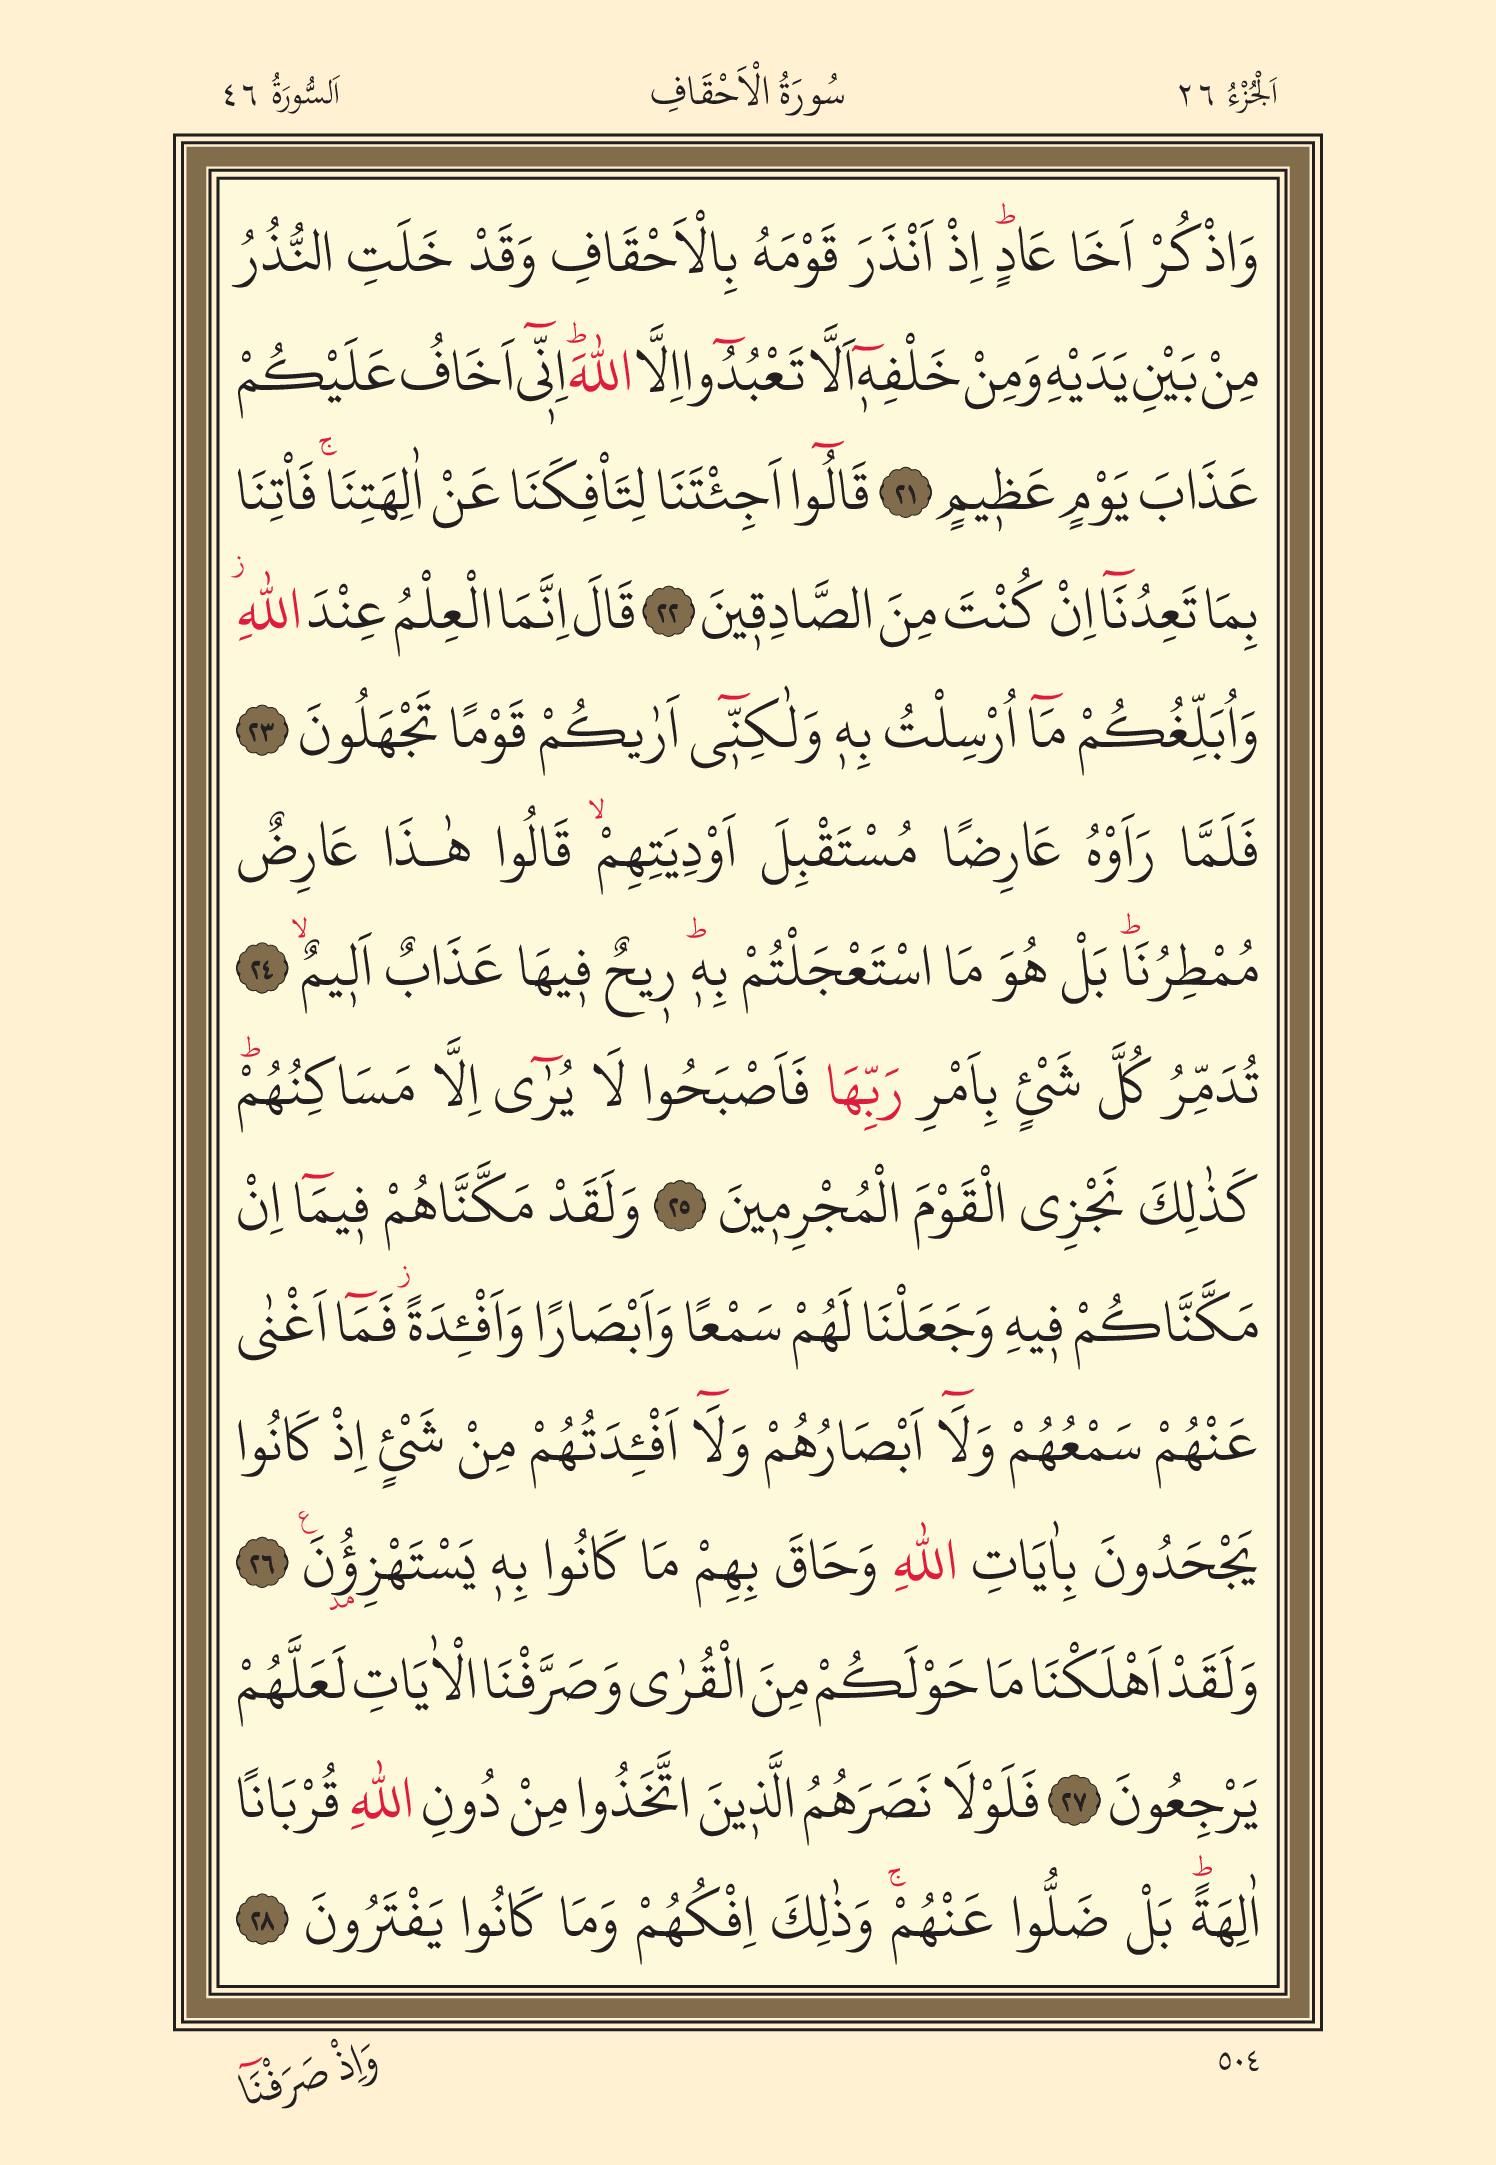 اَلْجُزْءُ ٢٦ سُورَةُ الْاَحْقَافِ اَلسُّورَةُ ٤٦
وَاذْكُرْ اَخَا عَادٍۜ اِذْ اَنْذَرَ قَوْمَهُ بِالْاَحْقَافِ وَقَدْ خَلَتِ النُّذُرُ
مِنْ بَيْنِ يَدَيْهِ وَمِنْ خَلْفِه۪ٓ اَلَّا تَعْبُدُٓوا اِلَّا اللّٰهَۜ اِنّ۪ٓي اَخَافُ عَلَيْكُمْ
عَذَابَ يَوْمٍ عَظ۪يمٍ ﴿٢١﴾ قَالُٓوا اَجِئْتَنَا لِتَاْفِكَنَا عَنْ اٰلِهَتِنَاۚ فَاْتِنَا
بِمَا تَعِدُنَٓا اِنْ كُنْتَ مِنَ الصَّادِق۪ينَ ﴿٢٢﴾ قَالَ اِنَّمَا الْعِلْمُ عِنْدَ اللّٰهِۘ
وَاُبَلِّغُكُمْ مَٓا اُرْسِلْتُ بِه۪ وَلٰكِنّ۪ٓي اَرٰيكُمْ قَوْمًا تَجْهَلُونَ ﴿٢٣﴾
فَلَمَّا رَاَوْهُ عَارِضًا مُسْتَقْبِلَ اَوْدِيَتِهِمْۙ قَالُوا هٰذَا عَارِضٌ
مُمْطِرُنَاۜ بَلْ هُوَ مَا اسْتَعْجَلْتُمْ بِه۪ۜ ر۪يحٌ ف۪يهَا عَذَابٌ اَل۪يمٌۙ ﴿٢٤﴾
تُدَمِّرُ كُلَّ شَيْءٍ بِاَمْرِ رَبِّهَا فَاَصْبَحُوا لَا يُرٰٓى اِلَّا مَسَاكِنُهُمْۜ
كَذٰلِكَ نَجْزِي الْقَوْمَ الْمُجْرِم۪ينَ ﴿٢٥﴾ وَلَقَدْ مَكَّنَّاهُمْ ف۪يمَٓا اِنْ
مَكَّنَّاكُمْ ف۪يهِ وَجَعَلْنَا لَهُمْ سَمْعًا وَاَبْصَارًا وَاَفْـِٔدَةًۘ فَمَٓا اَغْنٰى
عَنْهُمْ سَمْعُهُمْ وَلَٓا اَبْصَارُهُمْ وَلَٓا اَفْـِٔدَتُهُمْ مِنْ شَيْءٍ اِذْ كَانُوا
يَجْحَدُونَ بِاٰيَاتِ اللّٰهِ وَحَاقَ بِهِمْ مَا كَانُوا بِه۪ يَسْتَهْزِؤُ۫نَ۟ ﴿٢٦﴾
وَلَقَدْ اَهْلَكْنَا مَا حَوْلَكُمْ مِنَ الْقُرٰى وَصَرَّفْنَا الْاٰيَاتِ لَعَلَّهُمْ
يَرْجِعُونَ ﴿٢٧﴾ فَلَوْلَا نَصَرَهُمُ الَّذ۪ينَ اتَّخَذُوا مِنْ دُونِ اللّٰهِ قُرْبَانًا
اٰلِهَةًۜ بَلْ ضَلُّوا عَنْهُمْۚ وَذٰلِكَ اِفْكُهُمْ وَمَا كَانُوا يَفْتَرُونَ ﴿٢٨﴾
٥٠٤ وَاِذْ صَرَفْنَٓا